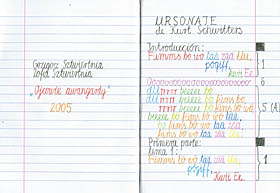 Grzegorz Sztwiertnia
Zofia Sztwiertnia
"Ojcowie awangardy"
2005
URSONATE
de Kurt Schwitters
Introducción:
Fümms bö wö tää zää Uu,
pögiff,
kwii Ee.
1
Ooooooooooooooooooooooo
6
dll rrrrr beeeee bö
dll rrrrr beeeee bö fümms bö,
rrrrr beeeee bö fümms bö wö,
beeeee bö fümms bö wö tää,
bö fümms bö wö tää zää,
fümms bö wö tää zää Uu:
5 (A)
Primera parte:
tema 1:
Fümms bö wö tää zää Uu,
pögiff,
kwii Ee.
1